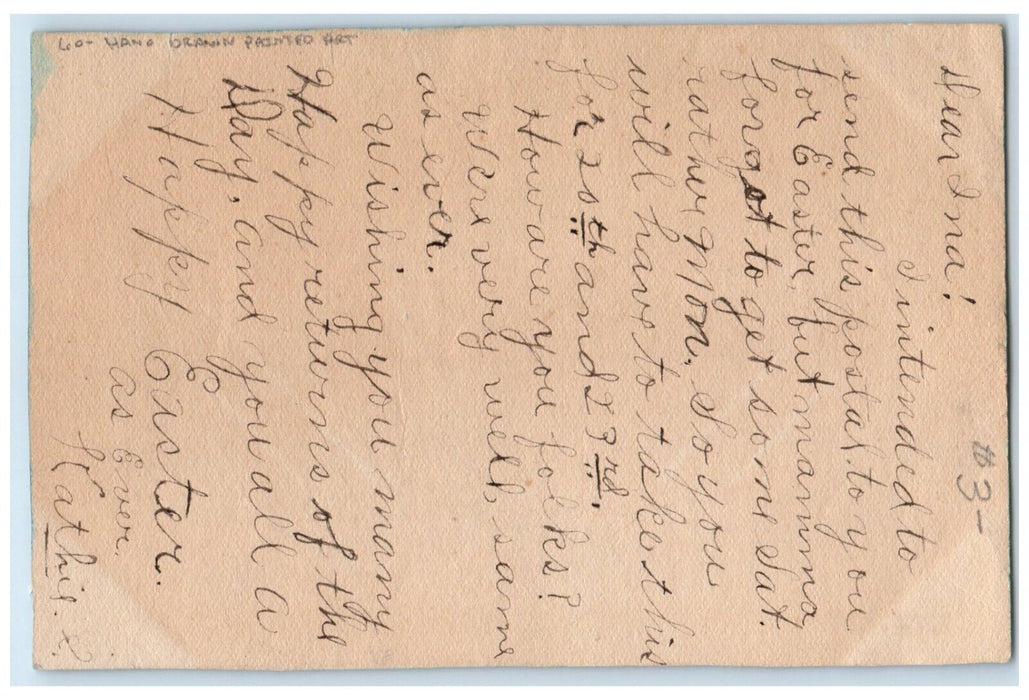 Dear Ina!
I intended to
send this postal to you
for Easter, but mamma
forgot to get some Sat.
rather Mon. So you
will have to take this
for 20th and 23rd.
How are you folks?
Were very well, same
as ever.
Wishing you many
Happy returns of the
Day, and you all a
Happy Easter.
as Ever.
Kathie.
#3-
60- HAND DRAWN PAINTED ART